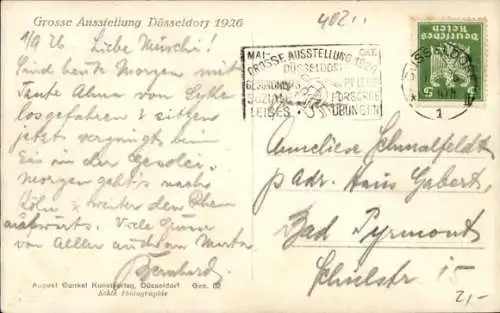 Grosse Ausstellung Düsseldorf 1926
402..
1/9 26 Liebe Muschi!
Sind heute Morgen mit
Tante Alma von
losgefahren & sitzen
jetzt vergnügt beim
Eis in der Gesolei.
Morgen geht's nach
Köln & weiter den Rhein
aufwärts. Viele Grüsse
von Allen auch an Mutter
Bernhard.
August Gunkel Kunstverlag, Düsseldorf Ges. 62
Echte Photographie
MAI- OKT.
GROSSE AUSSTELLUNG 1926
DÜSSELDORF
GESUNDHEITS PFLEGE
SOZIALE FÜRSORGE
LEIBES ÜBUNGEN
DÜSSELDORF
1
Deutsches
Reich
5 5
Anneliese Schmalfeldt
p. adr. Haus Gabert,
Bad Pyrmont
Schulstr 15
2,-